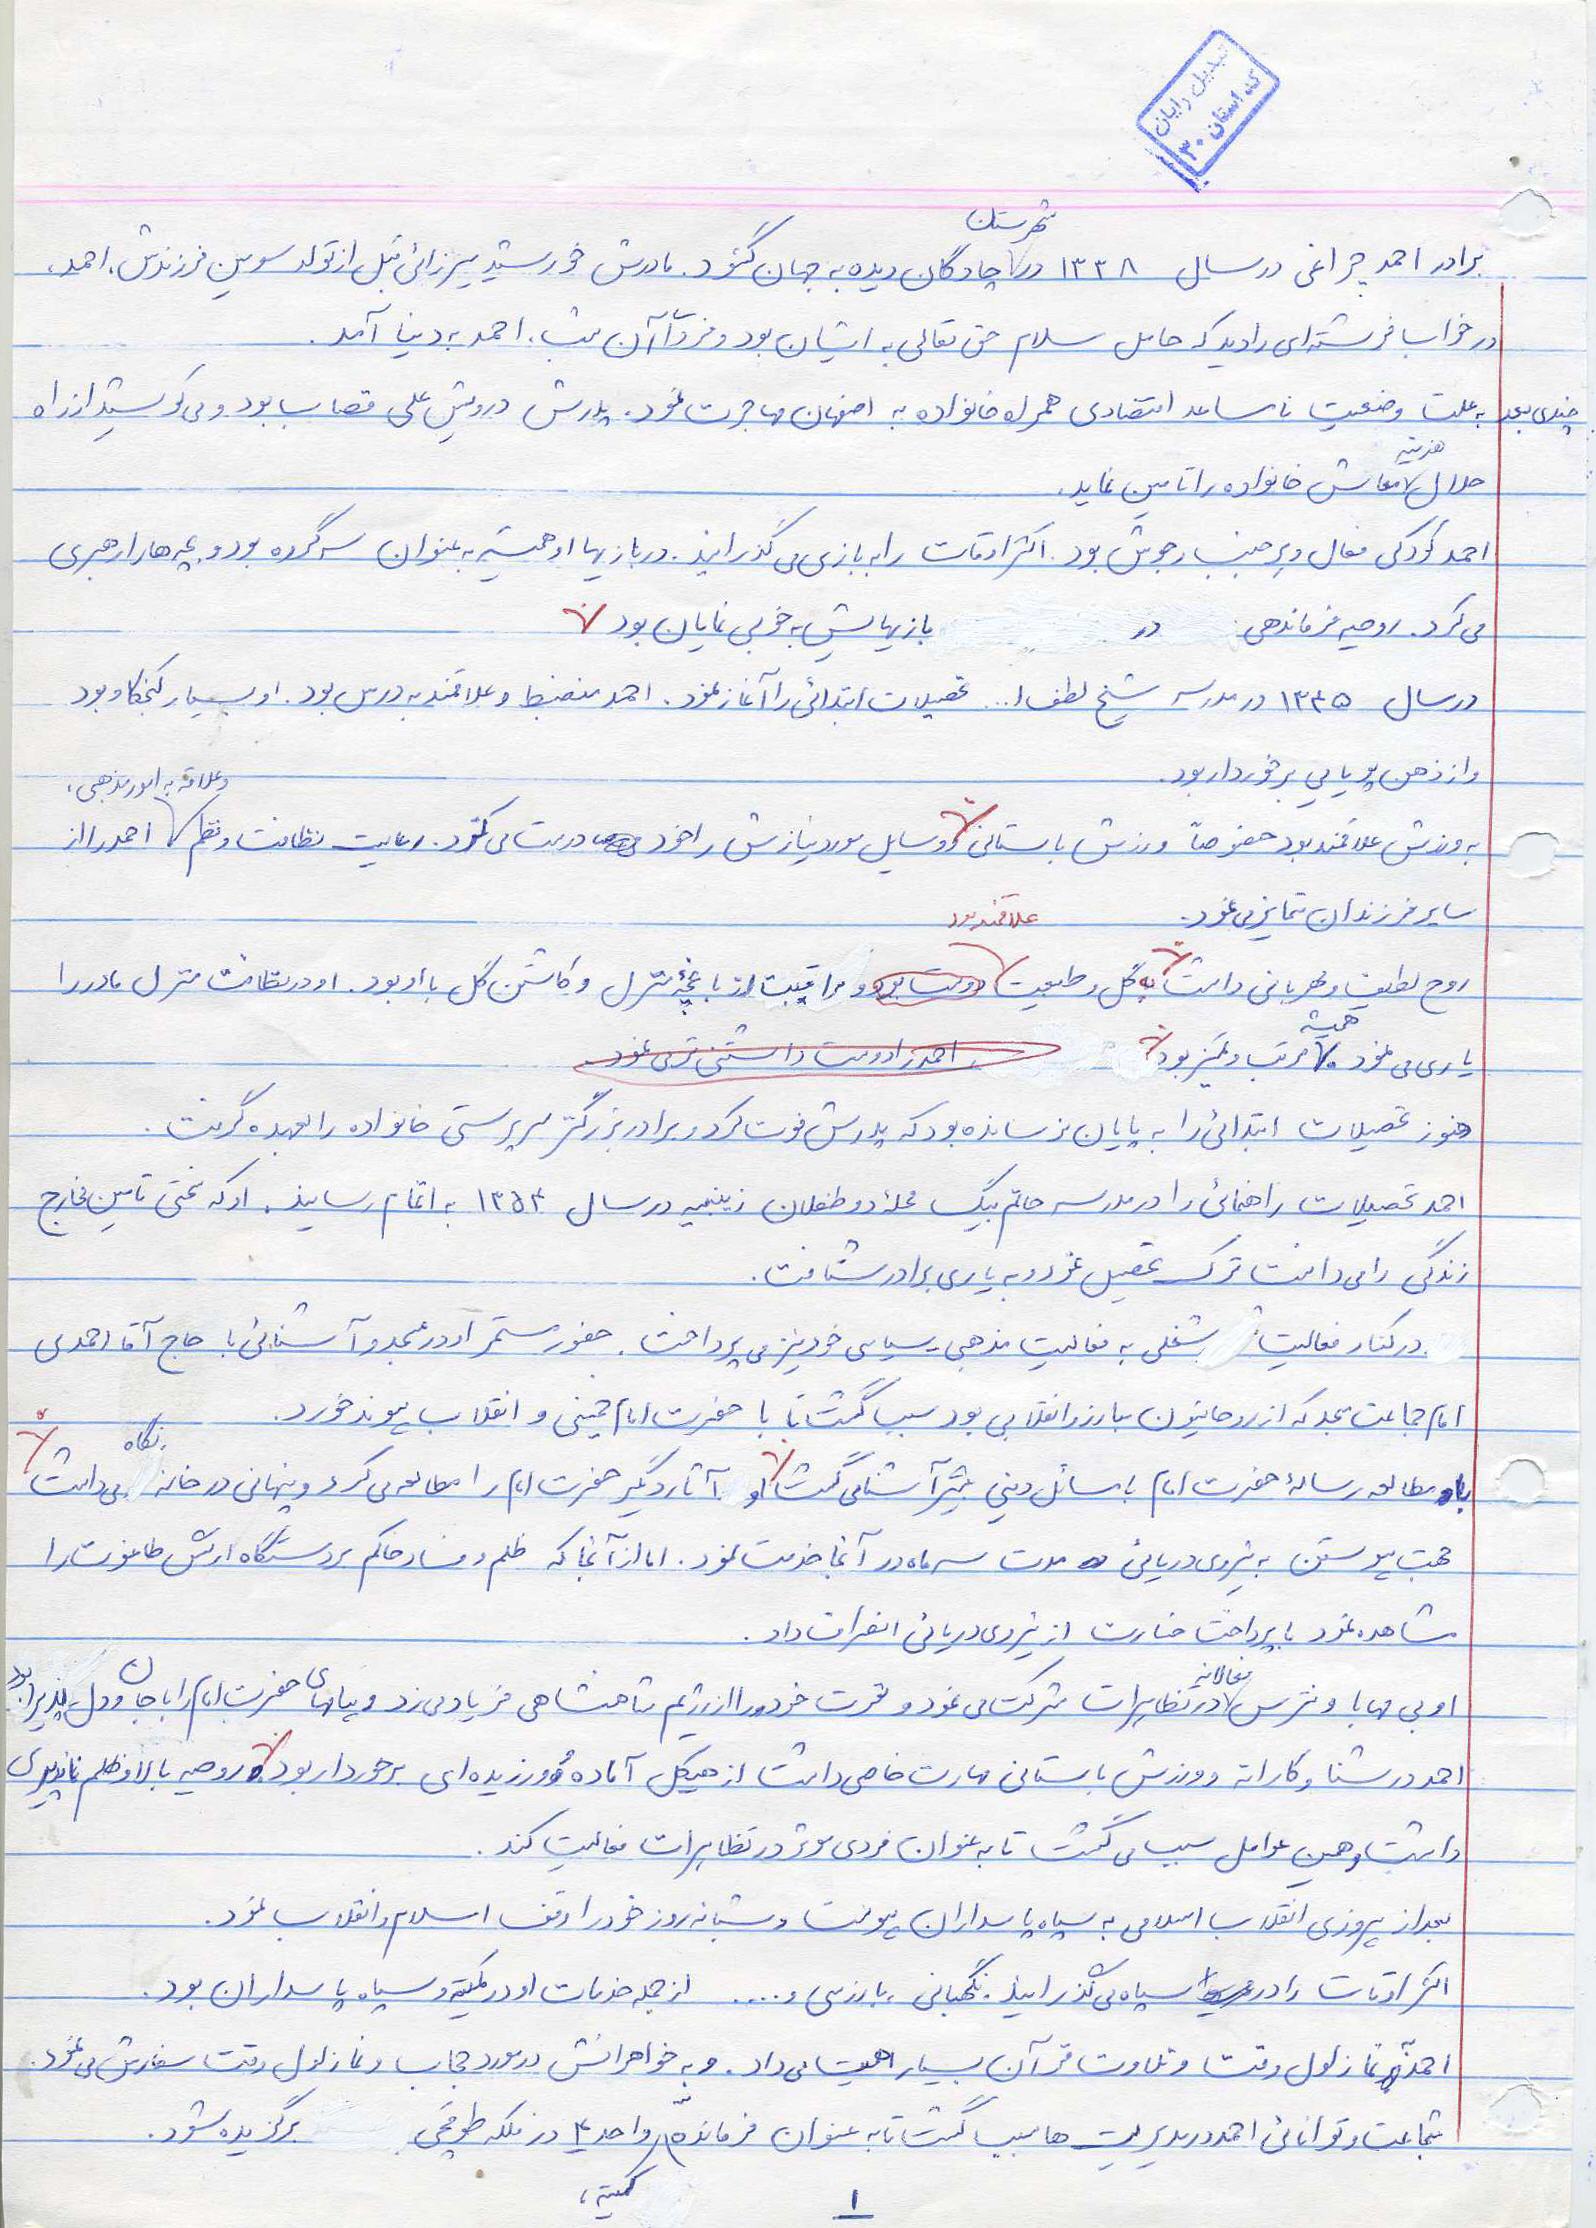 تبدیل رایان
کد استان ۳۰
شهرستان
برادر احمد چراغی در سال ۱۳۳۸ در چادگان دیده به جهان گشود. مادرش خورشید میرزائی قبل از تولد سومین فرزندش، احمد،
در خواب فرشته‌ای را دید که حامل سلام حق تعالی به ایشان بود و فردا آن شب، احمد به دنیا آمد.
چندی بعد به علت وضعیت نامساعد اقتصادی همراه خانواده به اصفهان مهاجرت نمود. پدرش درویش علی قصاب بود و می کوشید از راه
هزینه
حلال معاش خانواده را تامین نماید.
احمد کودکی فعال و پر جنب و جوش بود. اکثر اوقات را به بازی می گذرانید. در بازیها او همیشه به عنوان سرگروه بود و بچه ها را رهبری
می کرد. روحیه فرماندهی در بازیهایش به خوبی نمایان بود
در سال ۱۳۴۵ در مدرسه شیخ لطف ا... تحصیلات ابتدائی را آغاز نمود. احمد منضبط و علاقمند به درس بود. او بسیار کنجکاو بود
و از ذهن پویایی برخوردار بود.
وعلاقه به امور مذهبی،
به ورزش علاقمند بود خصوصاً ورزش باستانی و وسایل مورد نیازش را خود درست می کرد. رعایت نظافت و نظم احمد را از
سایر فرزندان متمایز می نمود.
علاقمند بود
روح لطیف و مهربانی داشت به گل و طبیعت دوست بود و مراقبت از باغچهٔ منزل و کاشتن گل با او بود. او در نظافت منزل مادر را
همیشه
یاری می نمود مرتب و تمیز بود احمد را دوست داشتنی تر می نمود.
هنوز تحصیلات ابتدائی را به پایان نرسانده بود که پدرش فوت کرد و برادر بزرگتر سرپرستی خانواده را بعهده گرفت.
احمد تحصیلات راهنمائی را در مدرسه حاتم بیگ محلهٔ دو طفلان زینبیه در سال ۱۳۵۴ به اتمام رسانید. او که سختی تامین مخارج
زندگی را می دانست ترک تحصیل نمود و به یاری برادر شتافت.
در کنار فعالیت شغلی به فعالیت مذهبی-سیاسی خود نیز می پرداخت. حضور مستمر او در مسجد و آشنائی با حاج آقا احمدی
امام جماعت مسجد که از روحانیون مبارز و انقلابی بود سبب گشت تا با حضرت امام خمینی و انقلاب پیوند خورد.
نگاه
با مطالعه رسالهٔ حضرت امام با مسائل دینی بیشتر آشنا می گشت او آثار دیگر حضرت امام را مطالعه می کرد و پنهانی در خانه می داشت
جهت پیوستن به نیروی دریائی مدت سه ماه در آنجا خدمت نمود. اما از آنجا که ظلم و فساد حاکم بر دستگاه ارتش طاغوت را
مشاهده نمود با پرداخت خسارت از نیروی دریائی انصراف داد.
فعالانه
او بی مهابا و نترس در تظاهرات شرکت می نمود و نفرت خود را از رژیم شاهنشاهی فریاد می زد و پیامهای حضرت امام را با جان و دل پذیرا بود
احمد در شنا و کاراته و ورزش باستانی مهارت خاصی داشت از هیکل آماده و ورزیده ای برخوردار بود روحیه بالا و ظلم ناپذیری
داشت و همین عوامل سبب می گشت تا به عنوان فردی موثر در تظاهرات فعالیت کند.
بعد از پیروزی انقلاب اسلامی به سپاه پاسداران پیوست و شبانه روز خود را وقف اسلام و انقلاب نمود.
اکثر اوقات را در سپاه می گذرانید. نگهبانی، بازرسی و .... از جمله خدمات او در کمیته و سپاه پاسداران بود.
احمد به نماز اول وقت و تلاوت قرآن بسیار اهمیت می داد. و به خواهرانش در مورد حجاب و نماز اول وقت سفارش می نمود.
شجاعت و توانائی احمد در مدیریت ها سبب گشت تا به عنوان فرماندهٔ واحد ۴ در فلکه طوقچی برگزیده شود.
کمیته،
۱